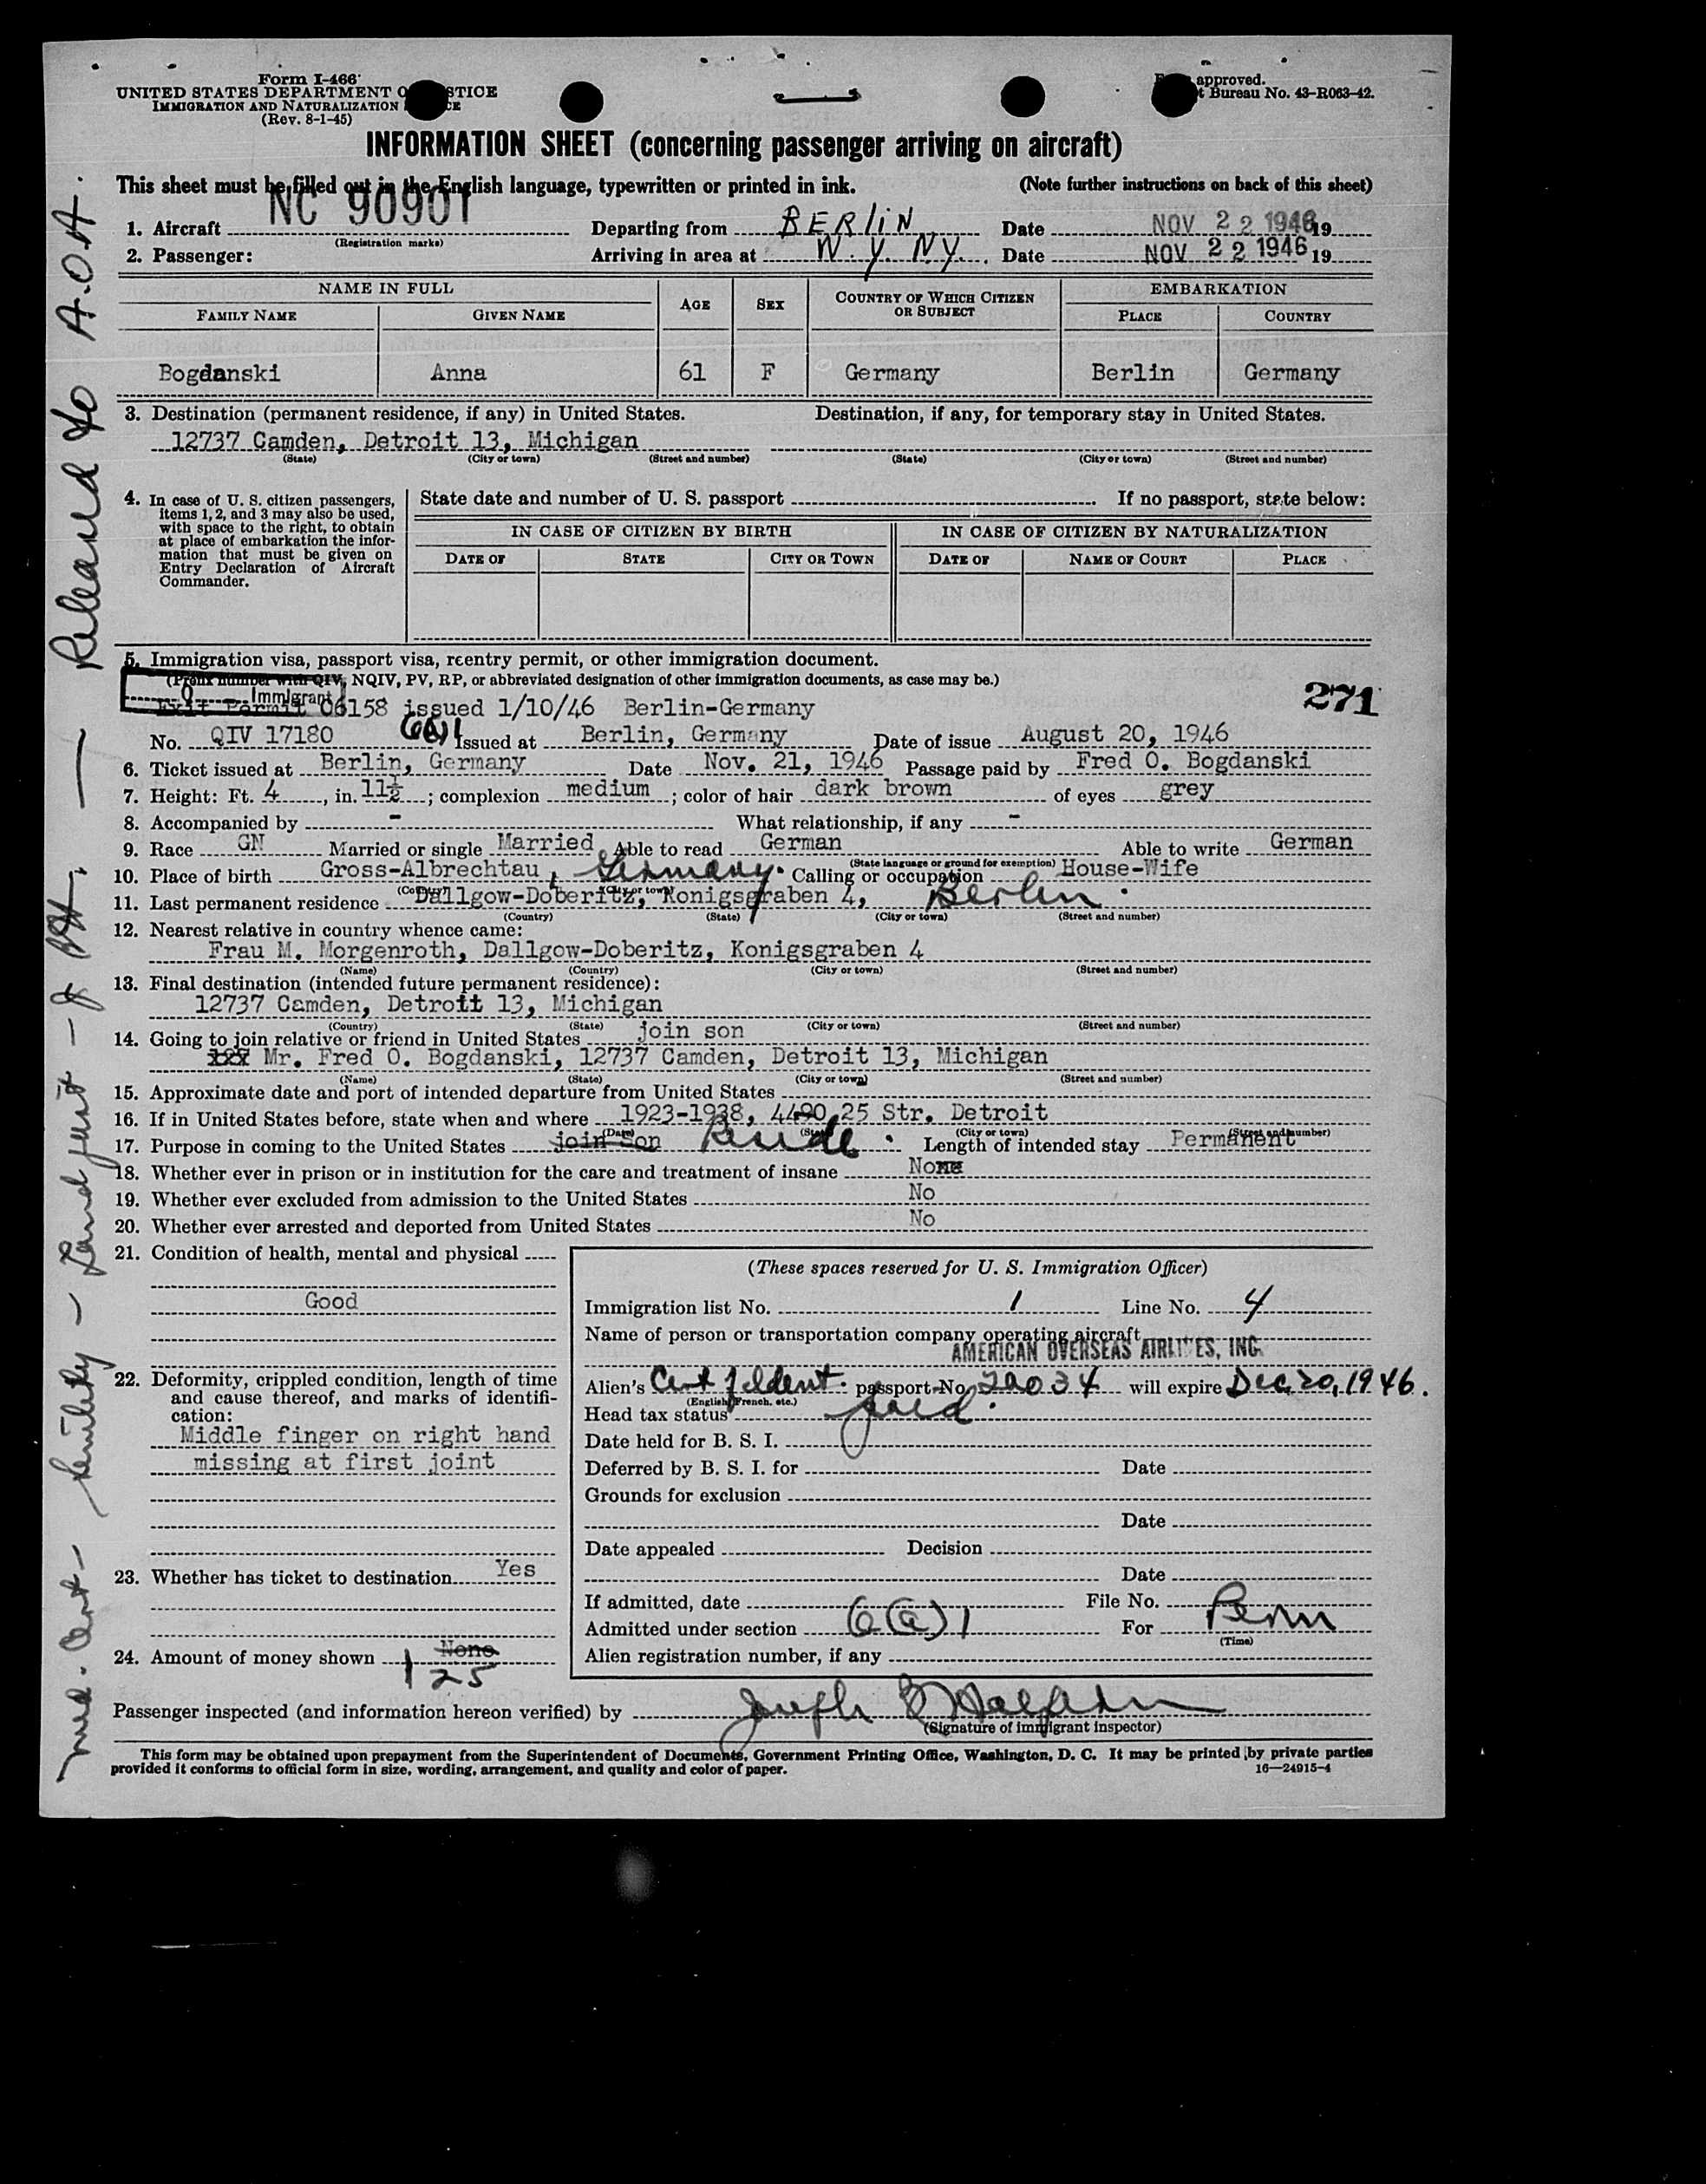 Form I-466
UNITED STATES DEPARTMENT O STICE
IMMIGRATION AND NATURALIZATION CE
(Rev. 8-1-45)
approved.
t Bureau No. 43-R063-42.
INFORMATION SHEET (concerning passenger arriving on aircraft)
This sheet must be filled out in the English language, typewritten or printed in ink. (Note further instructions on back of this sheet)
1. Aircraft NC 90901 Departing from BERLiN Date NOV 22 1946 19
(Registration marks)
2. Passenger: Arriving in area at N.Y. N.Y. Date NOV 22 1946 19
NAME IN FULL AGE SEX COUNTRY OF WHICH CITIZEN OR SUBJECT EMBARKATION
FAMILY NAME GIVEN NAME PLACE COUNTRY
Bogdanski Anna 61 F Germany Berlin Germany
3. Destination (permanent residence, if any) in United States. Destination, if any, for temporary stay in United States.
12737 Camden, Detroit 13, Michigan
(State) (City or town) (Street and number) (State) (City or town) (Street and number)
4. In case of U. S. citizen passengers,
items 1, 2, and 3 may also be used,
with space to the right, to obtain
at place of embarkation the infor-
mation that must be given on
Entry Declaration of Aircraft
Commander.
State date and number of U. S. passport If no passport, state below:
IN CASE OF CITIZEN BY BIRTH IN CASE OF CITIZEN BY NATURALIZATION
DATE OF STATE CITY OR TOWN DATE OF NAME OF COURT PLACE
5. Immigration visa, passport visa, reentry permit, or other immigration document.
(Prefix number with QIV, NQIV, PV, RP, or abbreviated designation of other immigration documents, as case may be.)
Q Immigrant
271
Exit Permit 06158 issued 1/10/46 Berlin-Germany
No. QIV 17180 6(a)1 Issued at Berlin, Germany Date of issue August 20, 1946
6. Ticket issued at Berlin, Germany Date Nov. 21, 1946 Passage paid by Fred O. Bogdanski
7. Height: Ft. 4, in. 11½; complexion medium; color of hair dark brown of eyes grey
8. Accompanied by - What relationship, if any -
9. Race GN Married or single Married Able to read German Able to write German
(State language or ground for exemption)
10. Place of birth Gross-Albrechtau, Germany. Calling or occupation House-Wife
(Country) (City or town)
11. Last permanent residence Dallgow-Doberitz, Konigsgraben 4, Berlin.
(Country) (State) (City or town) (Street and number)
12. Nearest relative in country whence came:
Frau M. Morgenroth, Dallgow-Doberitz, Konigsgraben 4
(Name) (Country) (City or town) (Street and number)
13. Final destination (intended future permanent residence):
12737 Camden, Detroit 13, Michigan
(Country) (State) (City or town) (Street and number)
14. Going to join relative or friend in United States join son
Mr. Fred O. Bogdanski, 12737 Camden, Detroit 13, Michigan
(Name) (State) (City or town) (Street and number)
15. Approximate date and port of intended departure from United States
16. If in United States before, state when and where 1923-1938, 4490 25 Str. Detroit
(Date) (State) (City or town) (Street and number)
17. Purpose in coming to the United States join Son Reside. Length of intended stay Permanent
18. Whether ever in prison or in institution for the care and treatment of insane No
19. Whether ever excluded from admission to the United States No
20. Whether ever arrested and deported from United States No
21. Condition of health, mental and physical
Good
22. Deformity, crippled condition, length of time
and cause thereof, and marks of identifi-
cation:
Middle finger on right hand
missing at first joint
23. Whether has ticket to destination Yes
24. Amount of money shown None
125
(These spaces reserved for U. S. Immigration Officer)
Immigration list No. 1 Line No. 4
Name of person or transportation company operating aircraft
AMERICAN OVERSEAS AIRLINES, INC.
Alien's Cert Ident. passport No. 20034 will expire Dec 20, 1946.
(English, French, etc.)
Head tax status paid.
Date held for B. S. I.
Deferred by B. S. I. for Date
Grounds for exclusion
Date
Date appealed Decision
Date
If admitted, date File No.
Admitted under section 6(a)1 For Perm
(Time)
Alien registration number, if any
Passenger inspected (and information hereon verified) by Joseph
(Signature of immigrant inspector)
This form may be obtained upon prepayment from the Superintendent of Documents, Government Printing Office, Washington, D. C. It may be printed by private parties
provided it conforms to official form in size, wording, arrangement, and quality and color of paper. 16—24915-4
Med. Cert - Senility - Released to A.O.A.